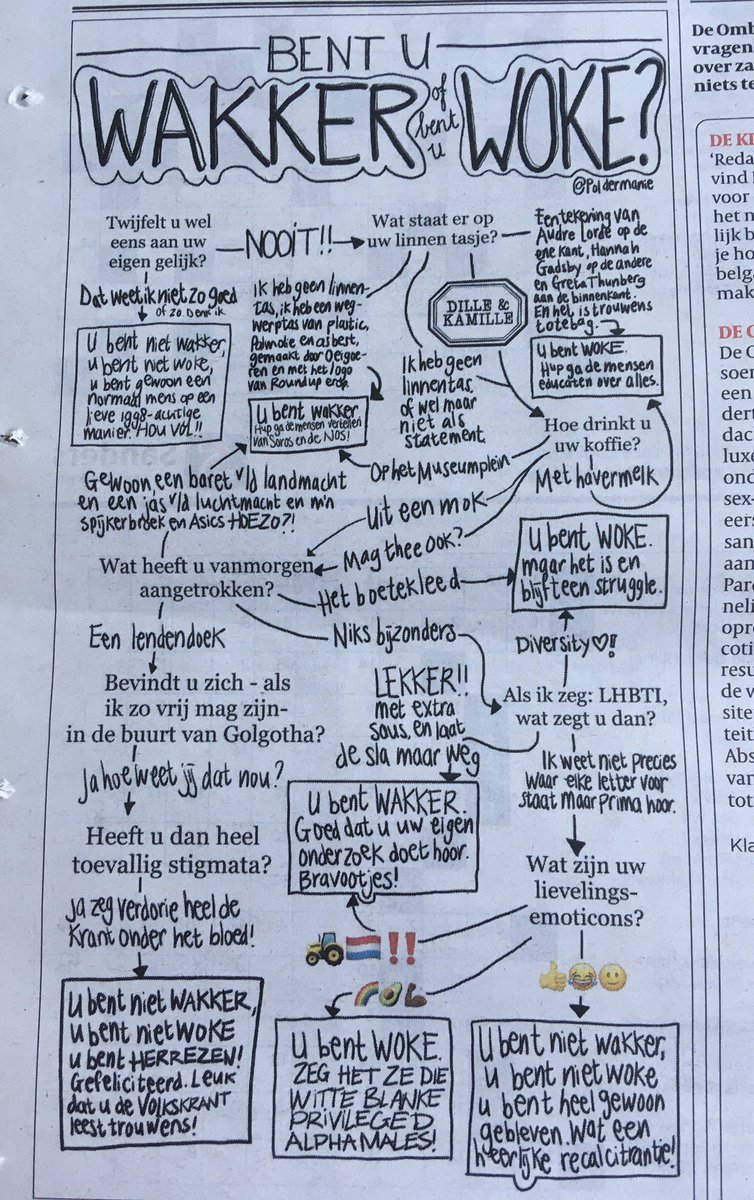 BENT U
WAKKER
of
bent
u
WOKE?
@Poldermanie
Twijfelt u wel
eens aan uw
eigen gelijk?
NOOIT!!
Wat staat er op
uw linnen tasje?
Een tekening van
Audre Lorde op de
ene kant, Hannah
Gadsby op de andere
en Greta Thunberg
aan de binnenkant.
En het is trouwens
totebag.
Dat weet ik niet zo goed
of zo Denk ik
U bent niet wakker,
u bent niet woke,
u bent gewoon een
normaal mens op een
lieve 1998-achtige
manier. HOU VOL!!
Ik heb geen linnen-
tas, ik heb een weg-
werptas van plastic,
Palmolie en asbest,
gemaakt door Oeigoe-
ren en met het logo
van Roundup erop.
DILLE &
KAMILLE
U bent WOKE.
Hup ga de mensen
educaten over alles.
Ik heb geen
linnentas
of wel maar
niet als
statement.
U bent wakker.
Hup ga de mensen vertellen
van Soros en de NOS!
Hoe drinkt u
uw koffie?
Op het Museumplein
Met havermelk
Gewoon een baret v/d landmacht
en een jas v/d luchtmacht en m'n
spijkerbroek en Asics HOEZO?!
Uit een mok
Mag thee ook?
U bent WOKE.
maar het is en
blijft een struggle.
Wat heeft u vanmorgen
aangetrokken?
Het boetekleed
Een lendendoek
Niks bijzonders
Diversity♡!
Bevindt u zich - als
ik zo vrij mag zijn-
in de buurt van Golgotha?
LEKKER!!
met extra
saus, en laat
de sla maar weg
Als ik zeg: LHBTI,
wat zegt u dan?
Ja hoe weet jij dat nou?
Ik weet niet precies
waar elke letter voor
staat maar prima hoor.
U bent WAKKER.
Goed dat u uw eigen
onderzoek doet hoor.
Bravootjes!
Heeft u dan heel
toevallig stigmata?
Wat zijn uw
lievelings-
emoticons?
Ja zeg verdorie heel de
Krant onder het bloed!
🚜🇳🇱‼️
🌈🥑💪🏿
👍😂🙂
U bent niet WAKKER,
U bent niet WOKE
U bent HERREZEN!
Gefeliciteerd. Leuk
dat u de VOLKSKRANT
leest trouwens!
U bent WOKE.
ZEG HET ZE DIE
WITTE BLANKE
PRIVILEGED
ALPHA MALES!
U bent niet wakker,
u bent niet woke
u bent heel gewoon
gebleven. Wat een
heerlijke recalcitrantie!
De Omb
vragen
over za
niets te
DE KL
'Reda
vind
voor
het n
lijk b
je ho
belga
mak
DE O
De O
soen
een
dert
dach
luxe
ond
sex-
eers
san
aan
Pare
neli
opro
coti
resu
de v
site
teit
Abs
van
tot
Kla